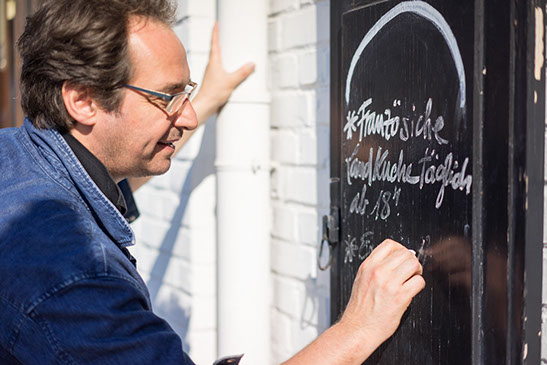 *Französiche
Landküche täglich
ab 18°°
*